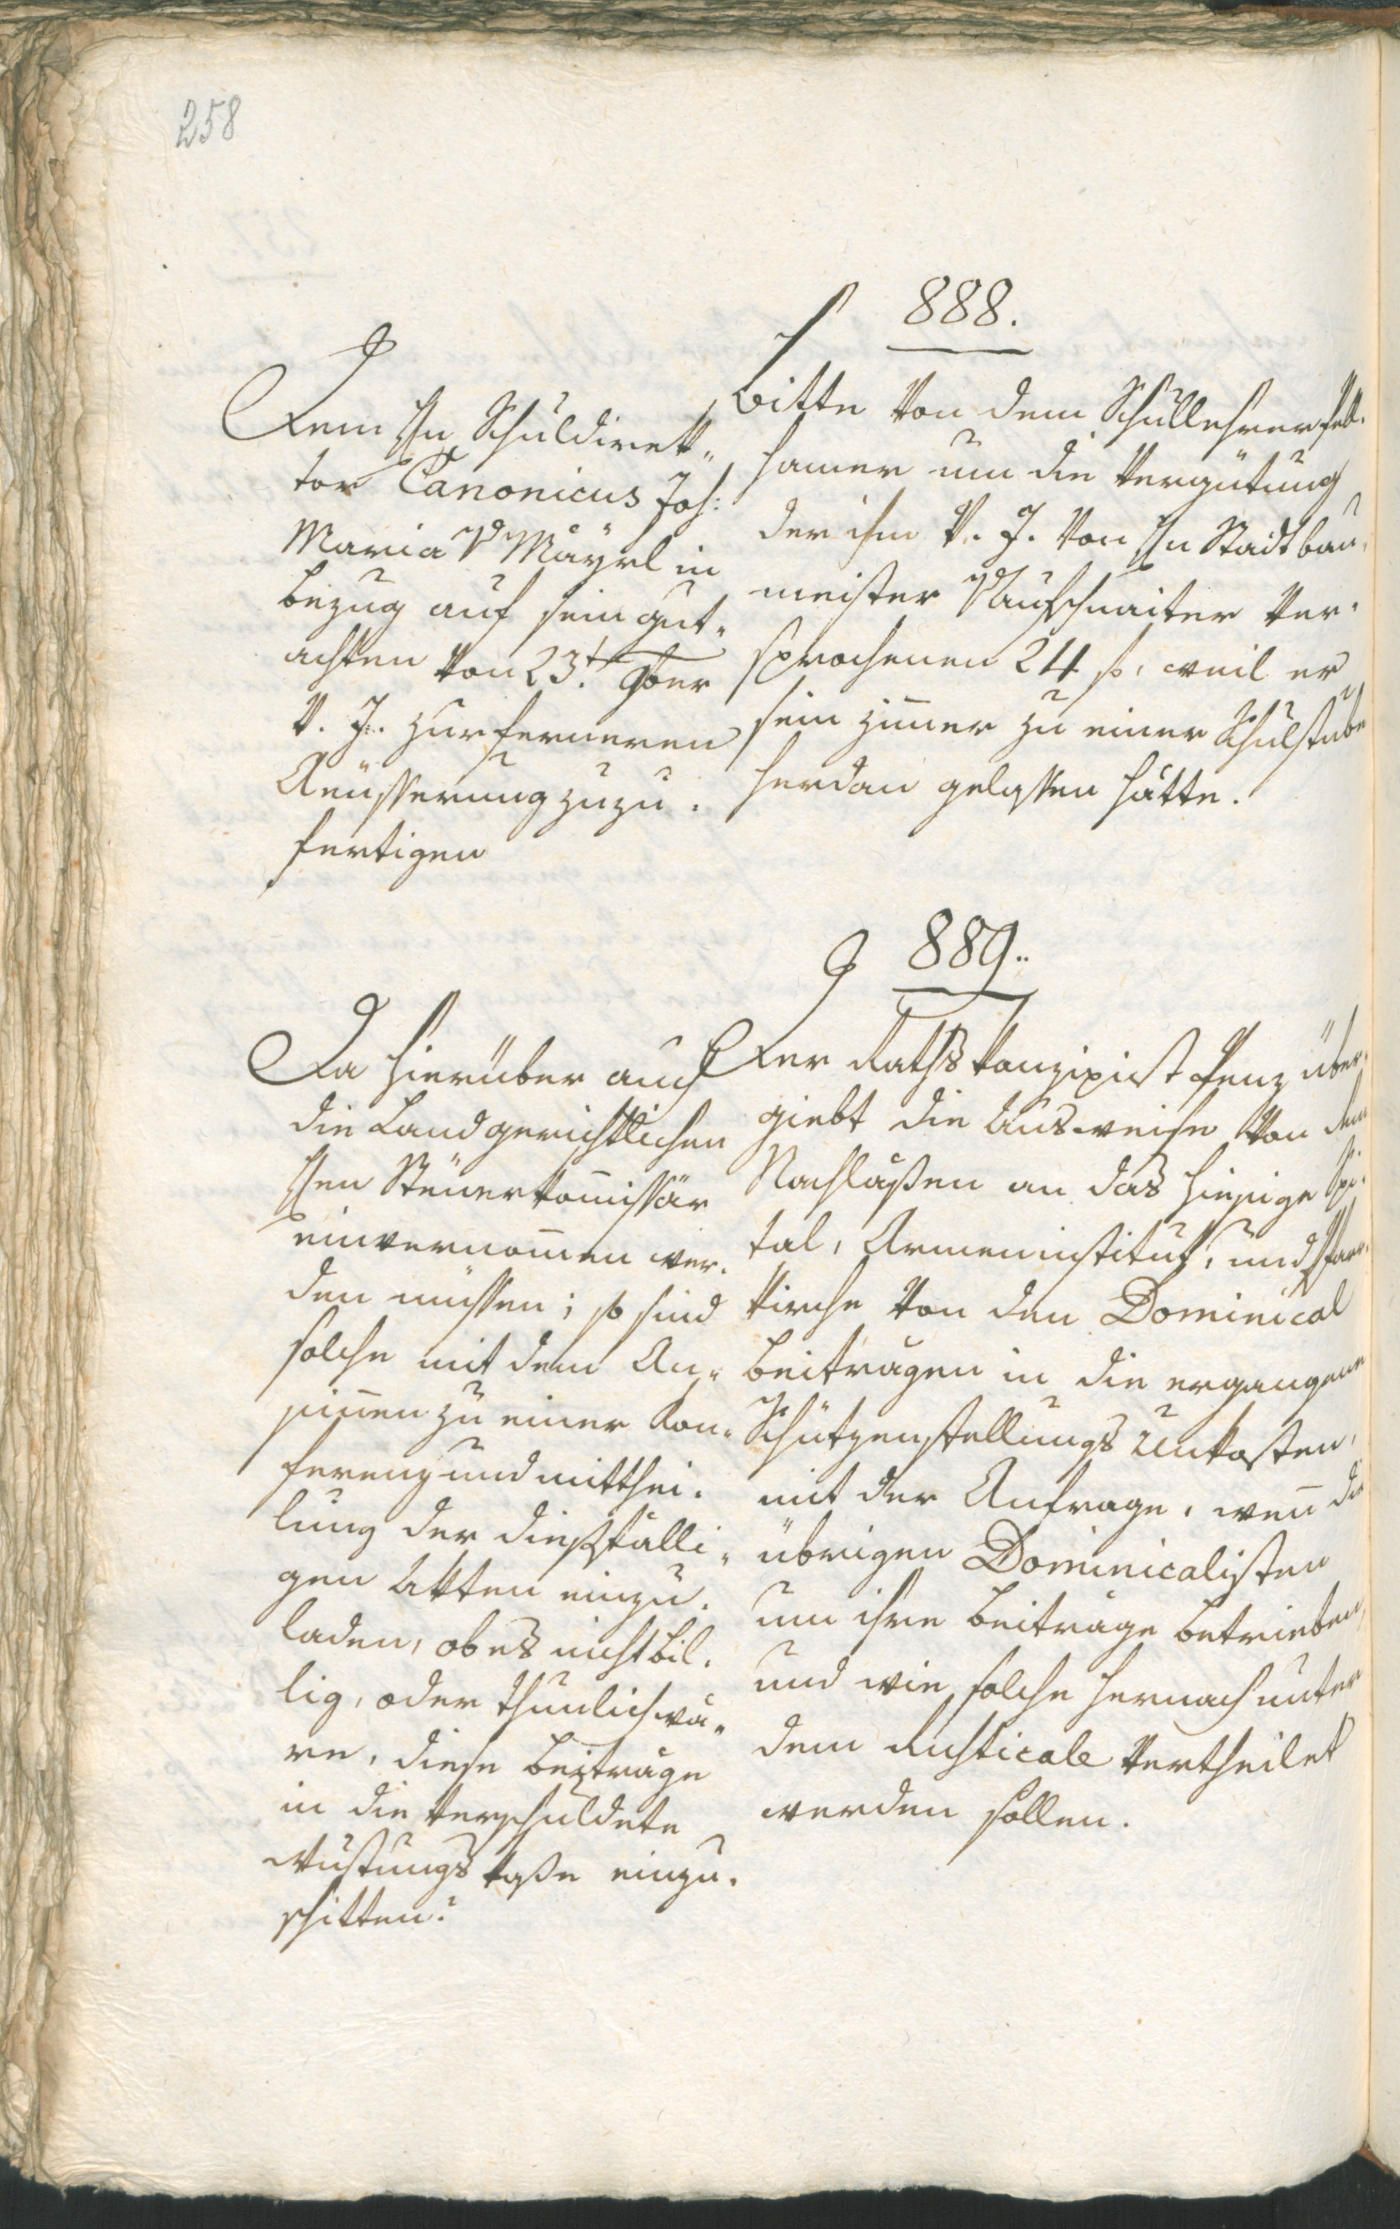 258
888.
Dem Hn Schuldirek„
tor Canonicus Joh:
Maria v Mayrl in
Bezug auf sein Gut„
achten von 23t. 9ber
v. J. zur ferneren
Aeusserung zuzu„
fertigen
Bitte von dem Schullehrer
hamer um die Vergütung
der ihm v. J. von Hn Stadtbau„
meister Nauschneiter ver„
sprochenen 24 f, weil er
sein Zimer zu einer Schulstube
herdan gelassen hätte.
889.
Da hierüber auch
die Landgerichtlichen
Hen Steuerkomissär
einvernomen wer„
den müssen; so sind
solche mit dem An„
sinen zu einer Kon„
ferenz und Mitthei„
lung der dießfälli„
gen Akten einzu„
laden, ob es nicht bil„
lig, oder thunlich wä„
re, diese Beiträge
in die verschuldete
Wustungs kaße einzu„
schitten?
Der Rathskanzipist Penz über„
giebt die Ausweise von den
Nachläßen an das hiesige Spi„
tal, Armeninstitut, und Pfarr„
kirche von den Dominical
Beitragen in die ergangene
Schützenstellungs Unkosten,
mit der Anfrage, wen die
übrigen Dominicalisten
um ihre Beiträge betrieben,
und wie solche hernach unter
dem Rusticale vertheilet
werden sollen.